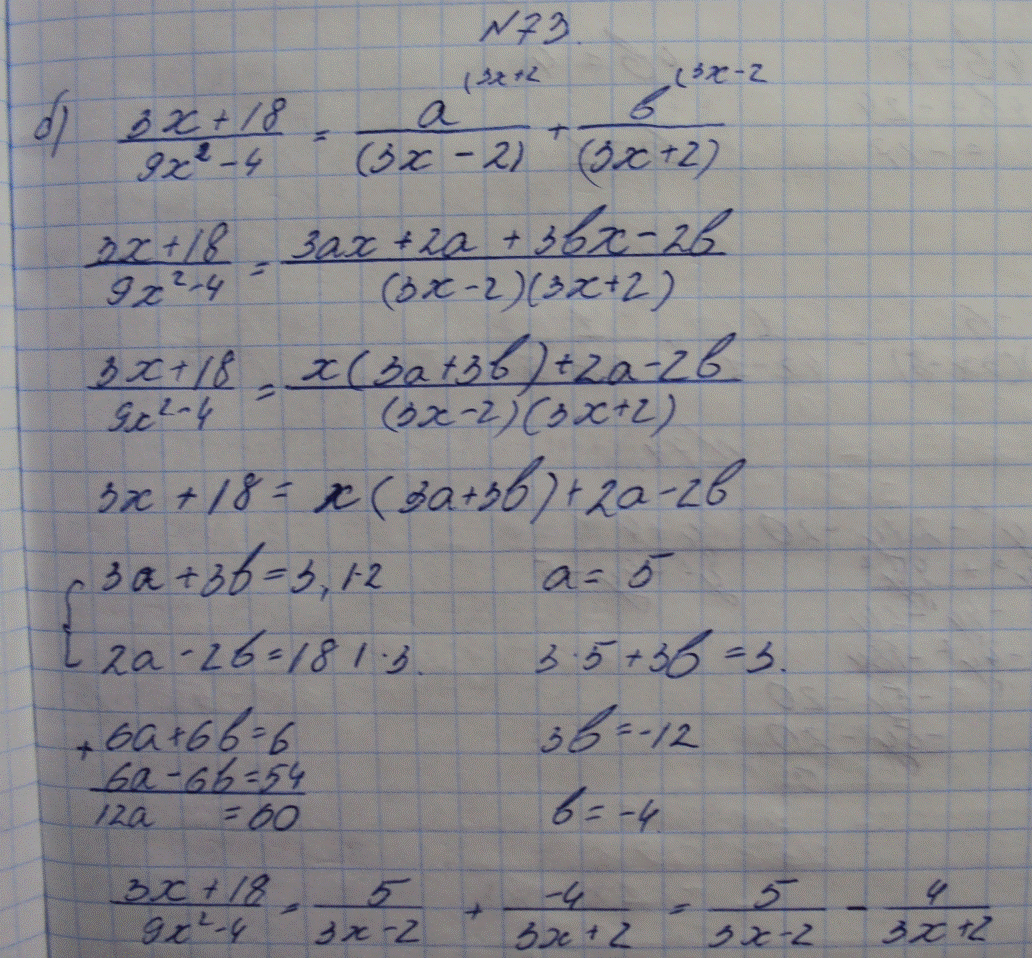 №73.
б) (3x+18)/(9x²-4) = a(3x+2/(3x-2) + b(3x-2/(3x+2)
(3x+18)/(9x²-4) = (3ax+2a+3bx-2b)/((3x-2)(3x+2))
(3x+18)/(9x²-4) = (x(3a+3b)+2a-2b)/((3x-2)(3x+2))
3x+18 = x(3a+3b)+2a-2b
{ 3a+3b=3, |·2
2a-2b=18 |·3.
+ 6a+6b=6
6a-6b=54
12a =60
a=5
3·5+3b=3.
3b=-12
b=-4
(3x+18)/(9x²-4) = 5/(3x-2) + -4/(3x+2) = 5/(3x-2) - 4/(3x+2)